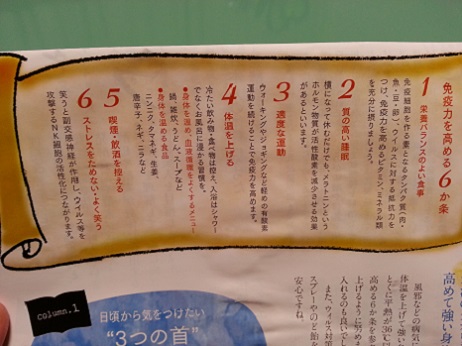 免疫力を高める6か条
1 栄養バランスのよい食事
免疫細胞を作る素となるタンパク質(肉・
魚・豆・卵)、ウイルスに対する抵抗力を
つけ、免疫力を高めるビタミン、ミネラル類
を充分に摂りましょう。
2 質の高い睡眠
横になって休むだけでも、メラトニンという
ホルモン物質が活性酸素を減少させる効果
があるといいます。
3 適度な運動
ウォーキングやジョギングなど軽めの有酸素
運動を続けることで免疫力を高めます。
4 体温を上げる
冷たい飲み物・食べ物は控え、入浴はシャワー
でなくお風呂に浸かる習慣を。
●身体を温め、血液循環をよくするメニュー
鍋、雑炊、うどん、スープなど
●身体を温める食品
ニンニク、タマネギ、生姜、
唐辛子、ネギ、ニラなど
5 喫煙・飲酒を控える
6 ストレスをためない・よく笑う
笑うと副交感神経が作用し、ウイルス等を
攻撃するNK細胞の活性化につながります。
高めて強い身
風邪などの病気に
体温を上げて強い
とくに平熱が36℃以
高める6か条を参
上げるように努める
入れるのも良いでし
また、ウイルス対
スプレーやのど飴を
安心ですね。
column.1
日頃から気をつけたい
“3つの首”